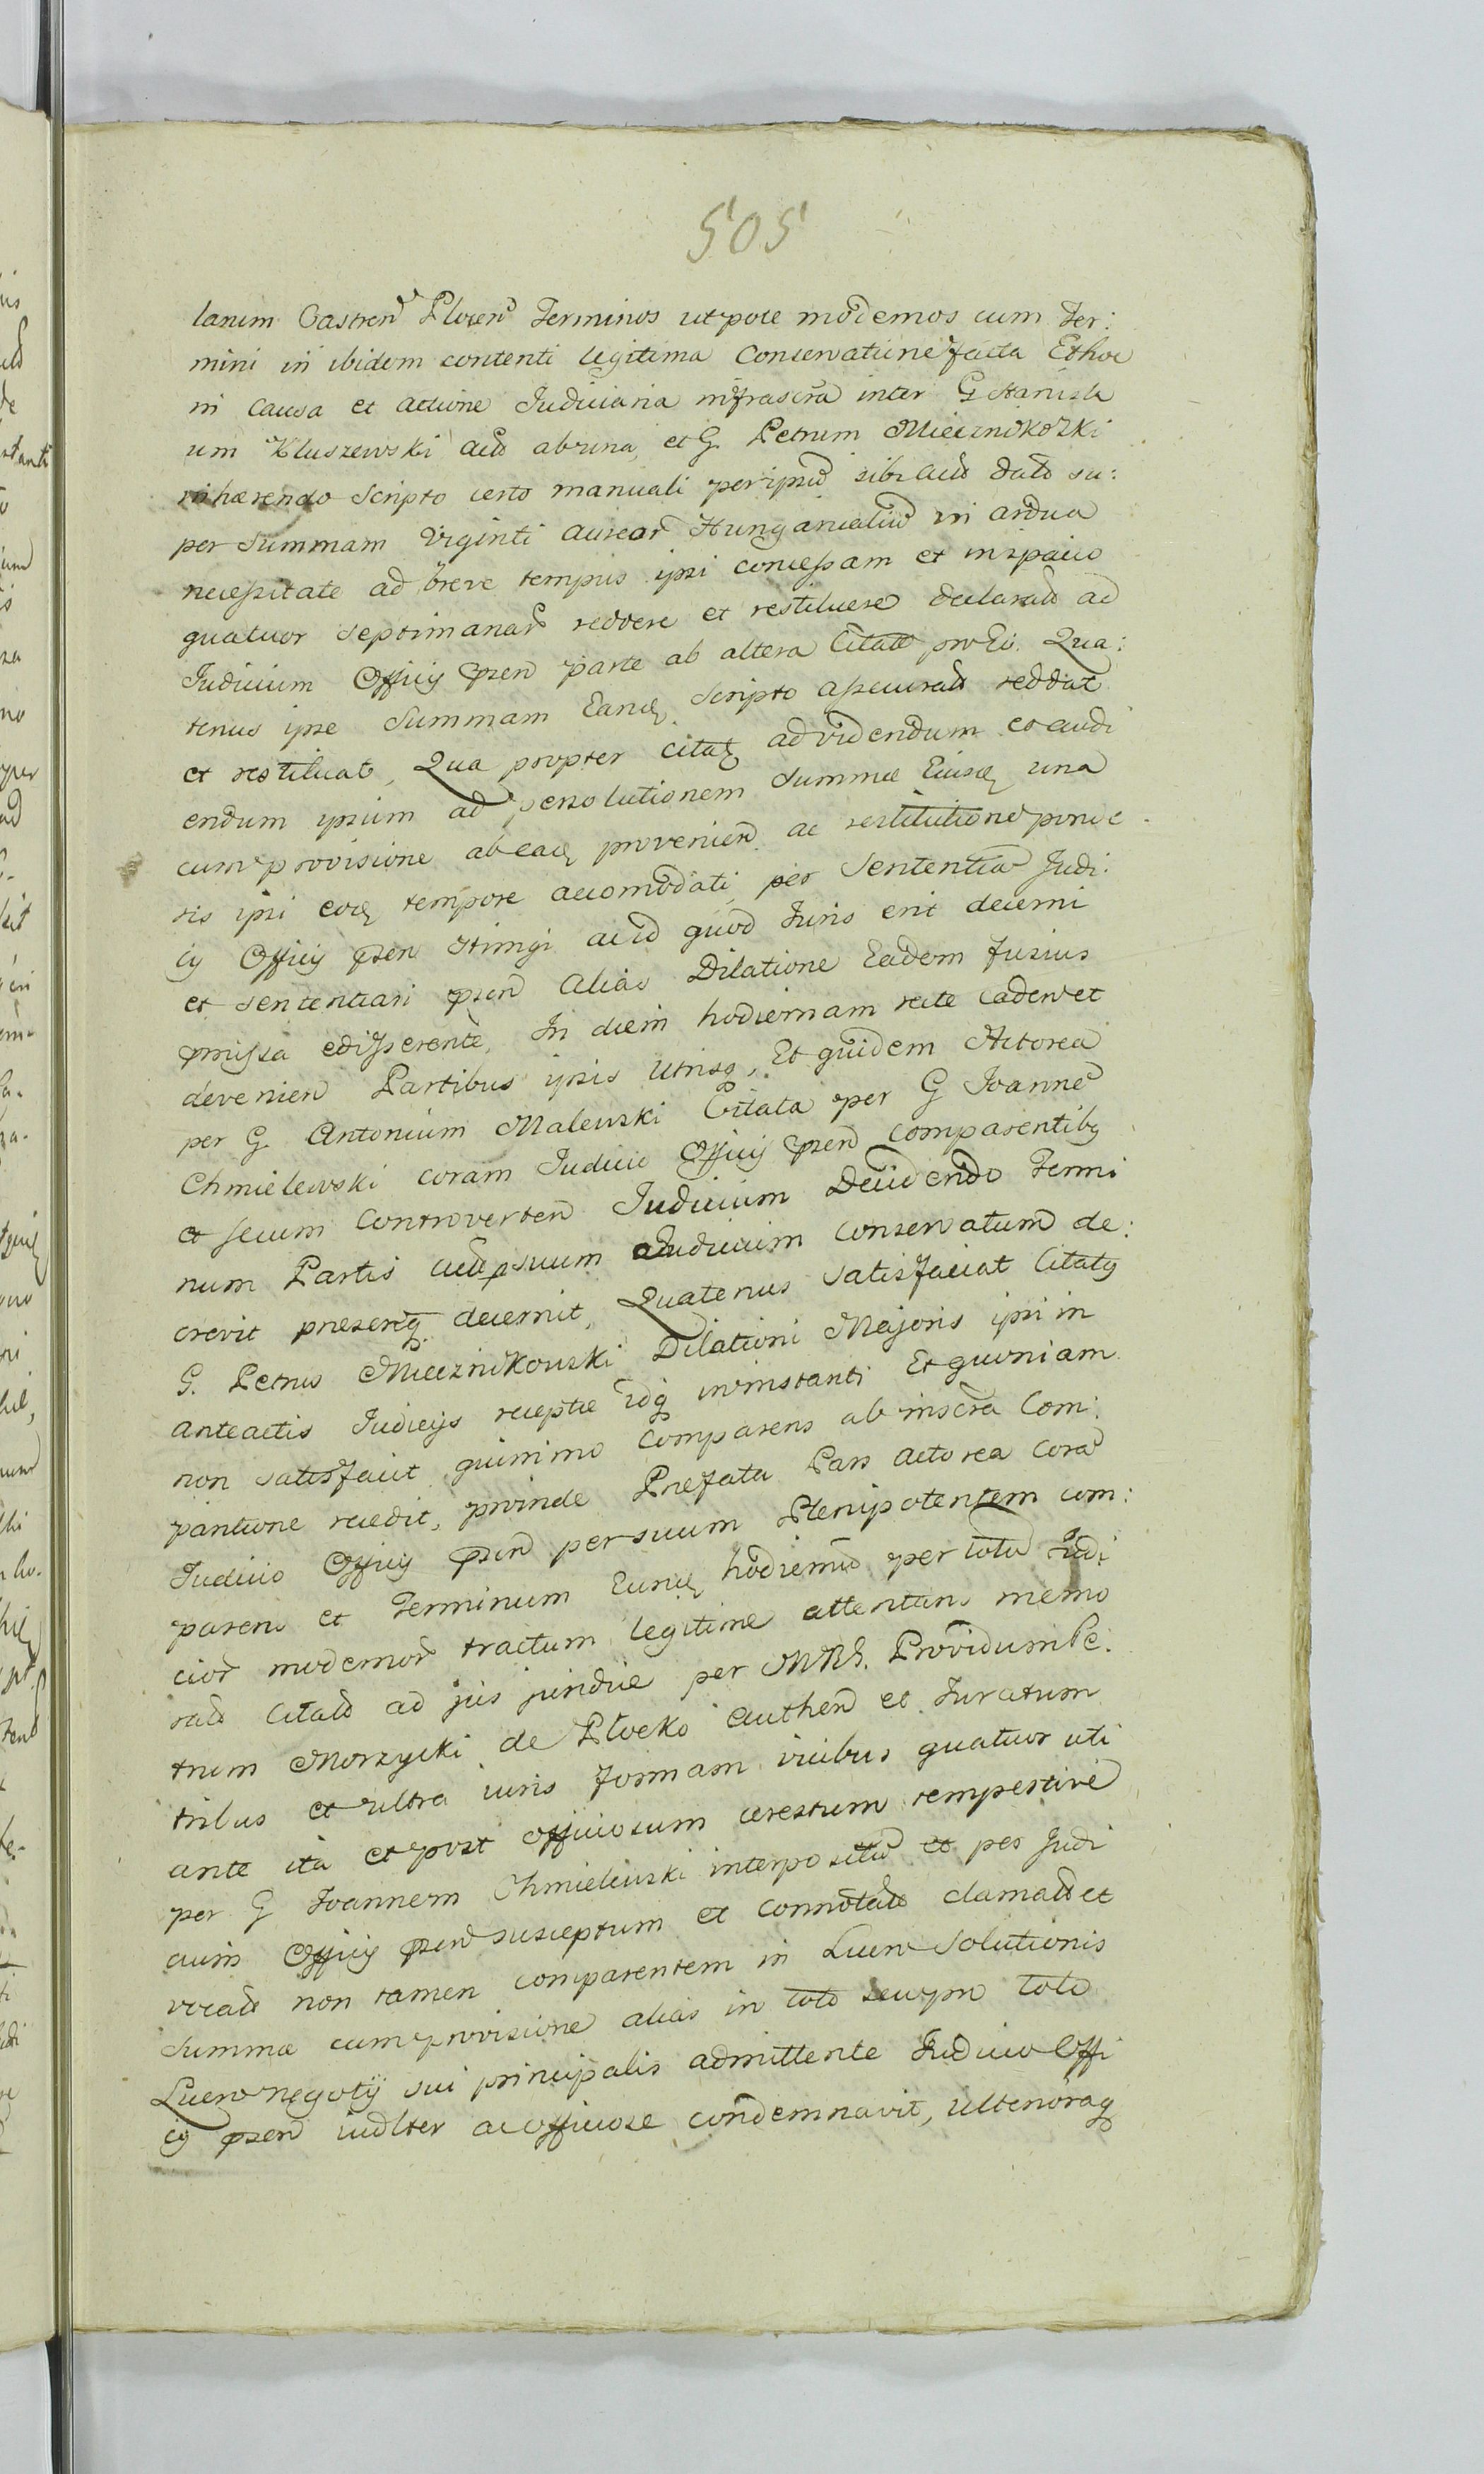 505
larum Castren Plocen Terminos utpote modernos cum Ter:
mini in ibidem contenti legitima Conservatione facta Ethoc
in Causa et actione Judiciaria infrascra inter G Stanisla
um Kluszewski acto ab una, et G. Petrum Miecznikoski
inhærendo Scripto certo manuali per ipsu sibi acto dato su:
per Summam Viginti aureor Hungaricaliu in ardua
necessitate ad breve tempus ipsi concessam et in spatio
quatuor septimanar reddere et restituere declarato ad
Judicium Officij psen parte ab altera Citato pro Eo. Qua:
tenus ipse Summam Eandq Scripto assecurato reddat
et restituat, Qua propter citatq ad videndum et audi
endum ipsum ad persolutionem Summæ Eiusdq una
cum provisione ab eadq provenien ac restitutione
ris ipsi eodq tempore accomodati, per Sententia Judi:
cij Officij psen stringi acid quod Juris erit decerni
et sententiari psen alias Dilatione Eadem fusius
pmissa edisserente, In diem hodiernam recte caden et
devenien Partibus ipsis utrisq, Et quidem Actorea
per G. Antonium Malewski Citata per G Joanne
Chmielewski coram Judicio Officij psen comparentibq
et secum Controverten Judicium Decidendo Termi
num Partis suum ad Judicium conservatum de:
crevit presentq decernit, Quatenus satisfaciat Citatq
G. Petrus Miecznikowski Dilationi Majoris ipsi in
anteactis Judicijs receptæ idq in instanti Et quoniam
non satisfacit quinimo Comparens ab inscra Com:
paritione recedit, proinde Prefata Pars actorea Cora
Judicio Officij psen per suum Plenipotentem com:
paren et Terminum Eundq hodiernu per totu Judi
cior modernor tractum legitime attentans memo
rato Citato ad jus juridice per MRS. Providum Pe:
trum Morzycki de Plocko authen et Juratum
tribus et ultra iuris formam vicibus quatuor uti
ante ita et post officiosum arestum tempestive
per G Joannem Chmielewski interpositu et per Judi
cium Officij psen susceptum et connotato clamato et
vocato non tamen comparentem in Lucro Solutionis
Summæ cum provisione alias in toto seu pro toto
Lucro negotij sui principalis admittente Judicio Offi
cij psen iudlter ac officiose condemnavit, ulterioraq